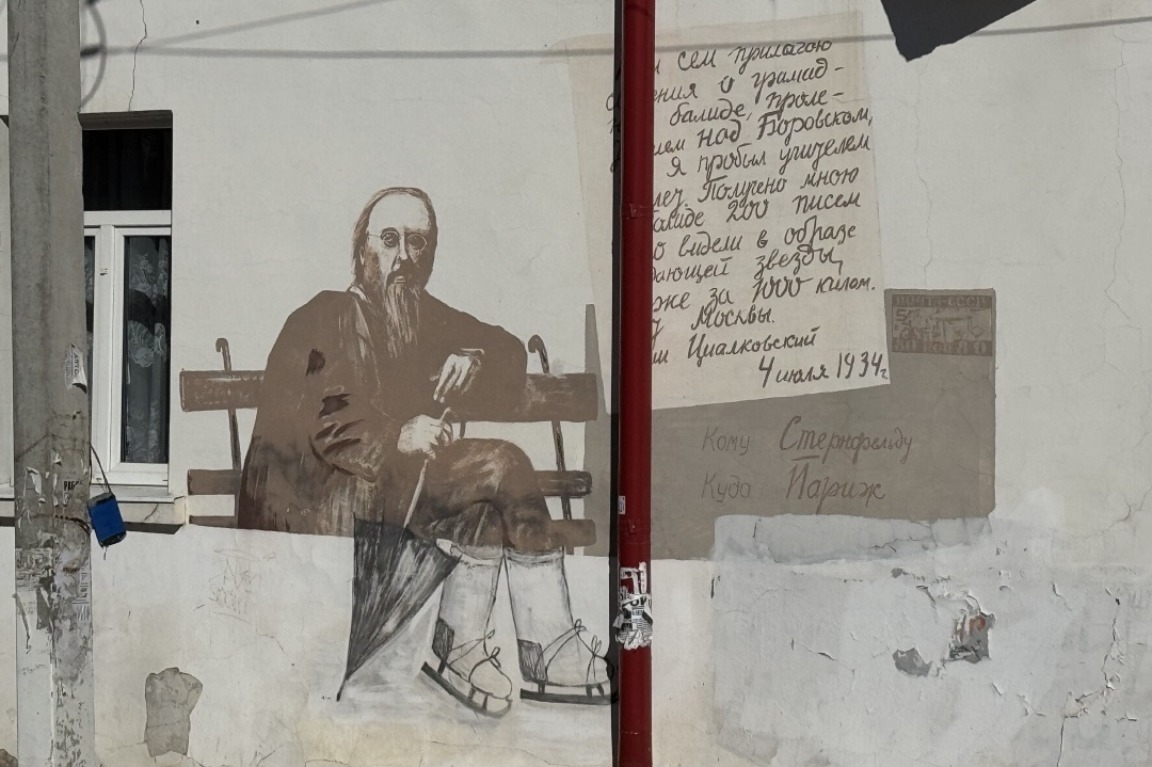 сем прилагаю
ения о грамад-
балиде, проле-
ием над Боровском,
я пробыл учителем
лет. Получено мною
алиде 200 писем
о видели в образе
дающей звезды,
же за 1000 килом.
у Москвы.
ш Циалковский
4 июля 1934г.
ПОЧТА СССР
Кому Стернфельду
Куда Париж